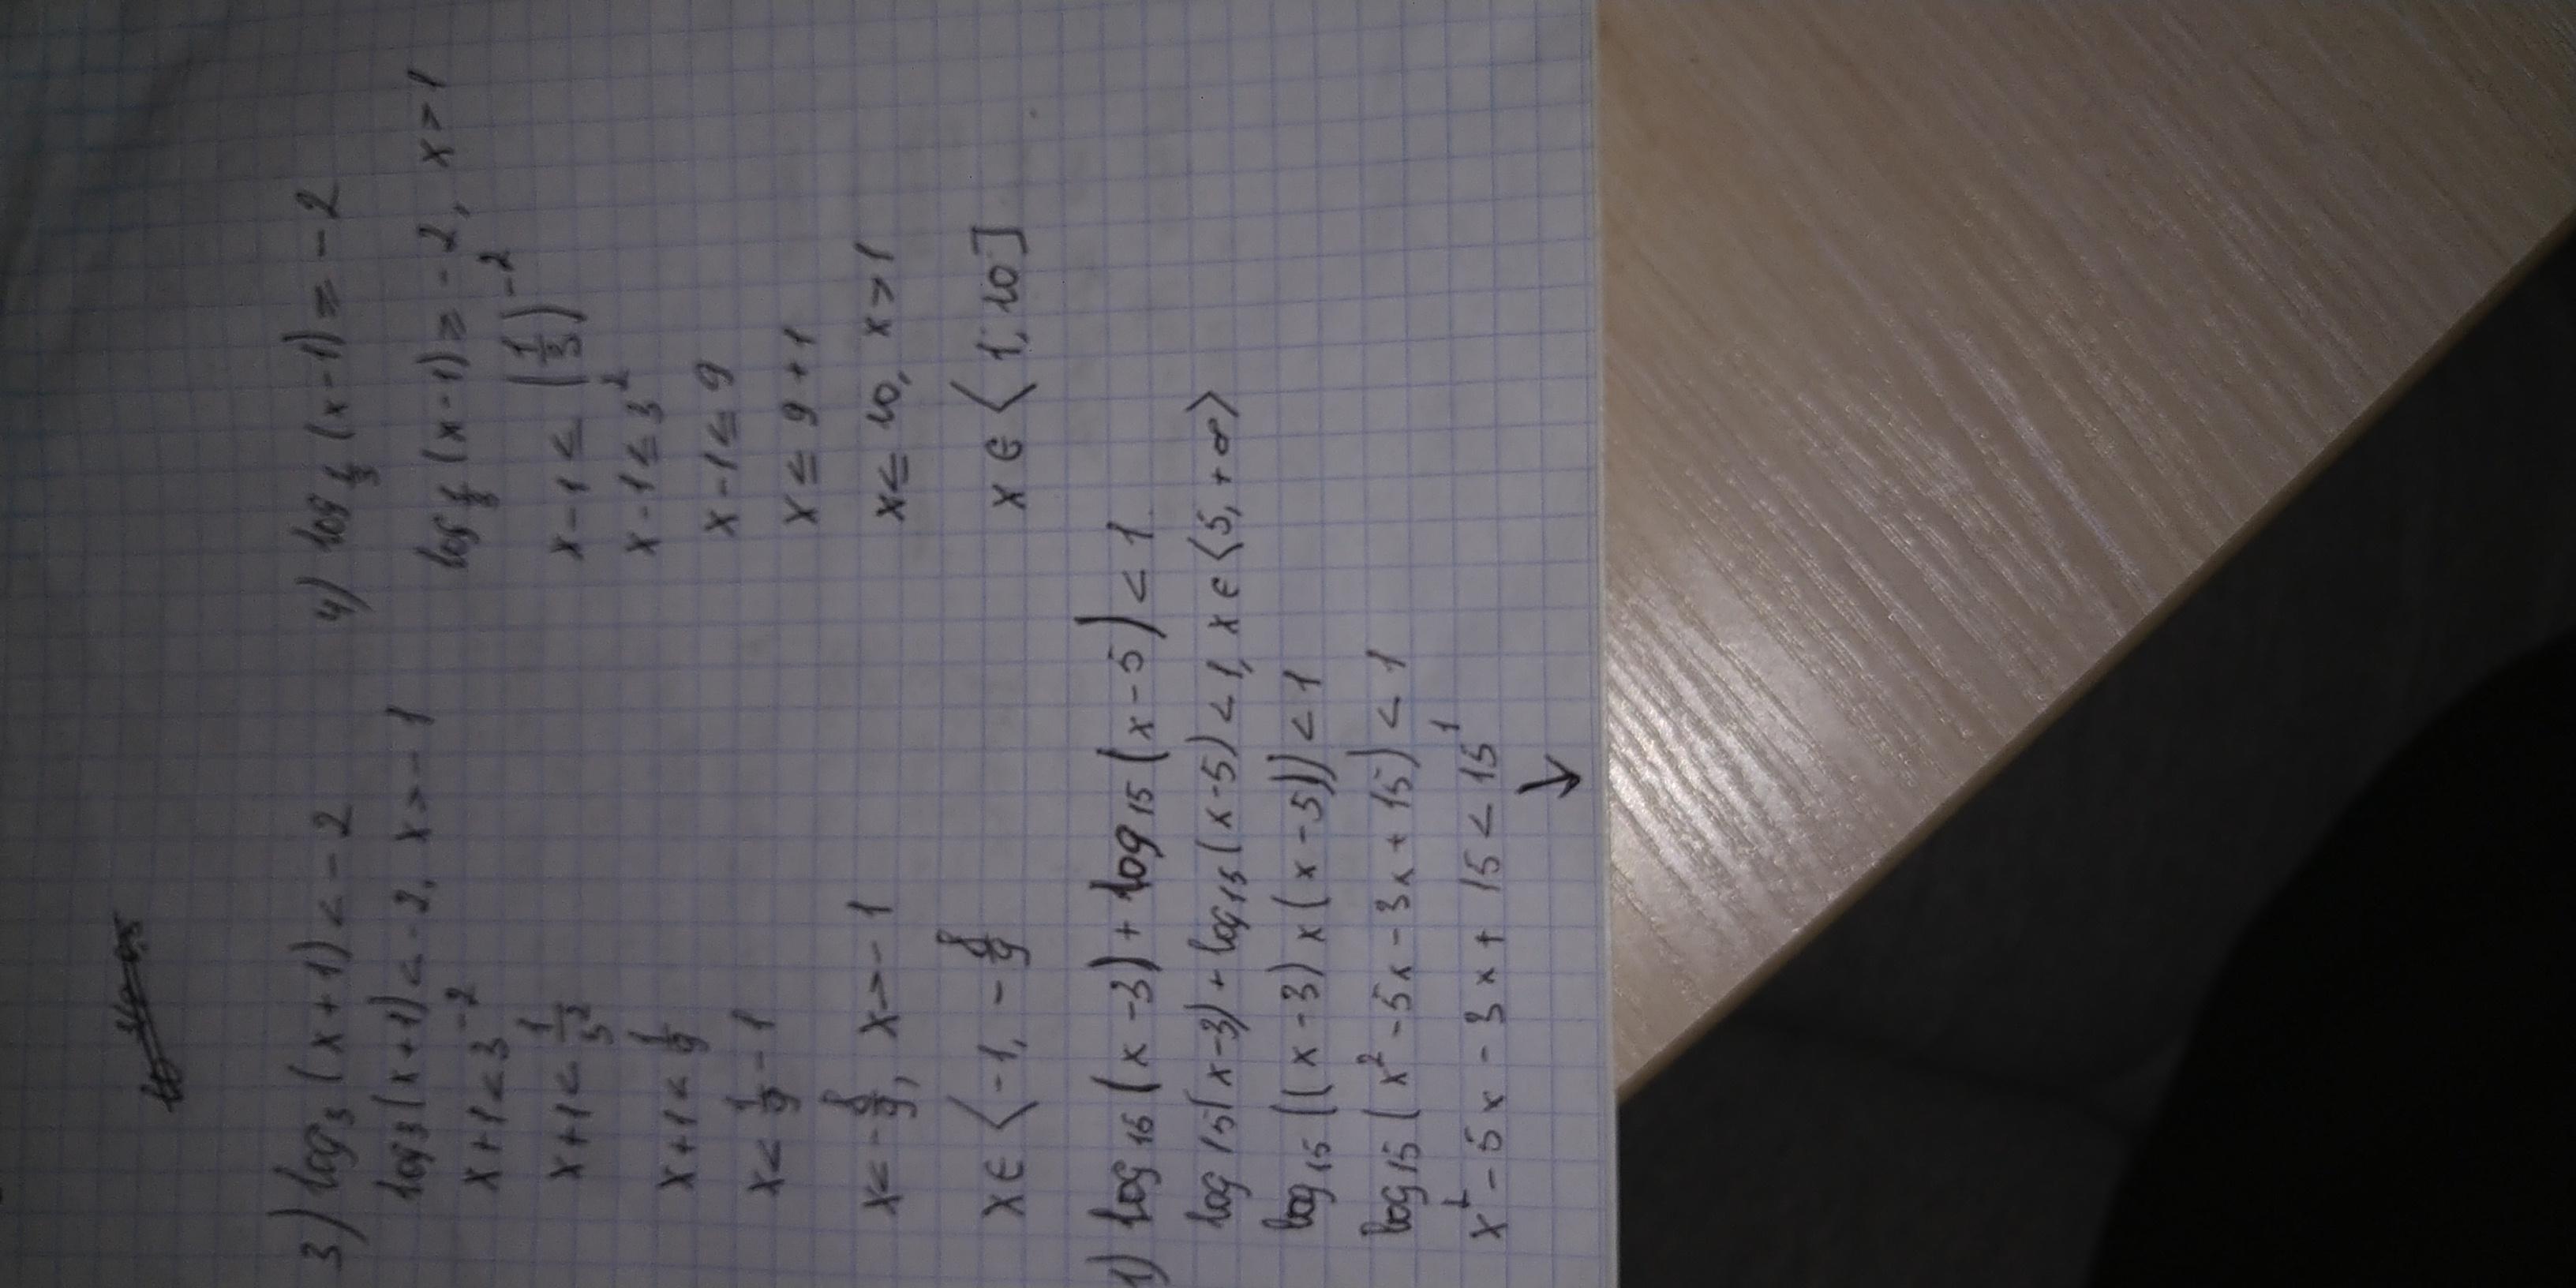 3) log₃(x+1) < -2
log₃(x+1) < -2, x > -1
x+1 < 3⁻²
x+1 < 1/3²
x+1 < 1/9
x < 1/9 - 1
x < -8/9, x > -1
x ∈ ⟨-1, -8/9
4) log 1/3 (x-1) ≥ -2
log 1/3 (x-1) ≥ -2, x > 1
x-1 ≤ (1/3)⁻²
x-1 ≤ 3²
x-1 ≤ 9
x ≤ 9+1
x ≤ 10, x > 1
x ∈ ⟨1, 10]
1) log₁₅(x-3) + log₁₅(x-5) < 1
log₁₅(x-3) + log₁₅(x-5) < 1, x ∈ ⟨5, +∞⟩
log₁₅((x-3)x(x-5)) < 1
log₁₅(x²-5x-3x+15) < 1
x²-5x-3x+15 < 15¹
↓